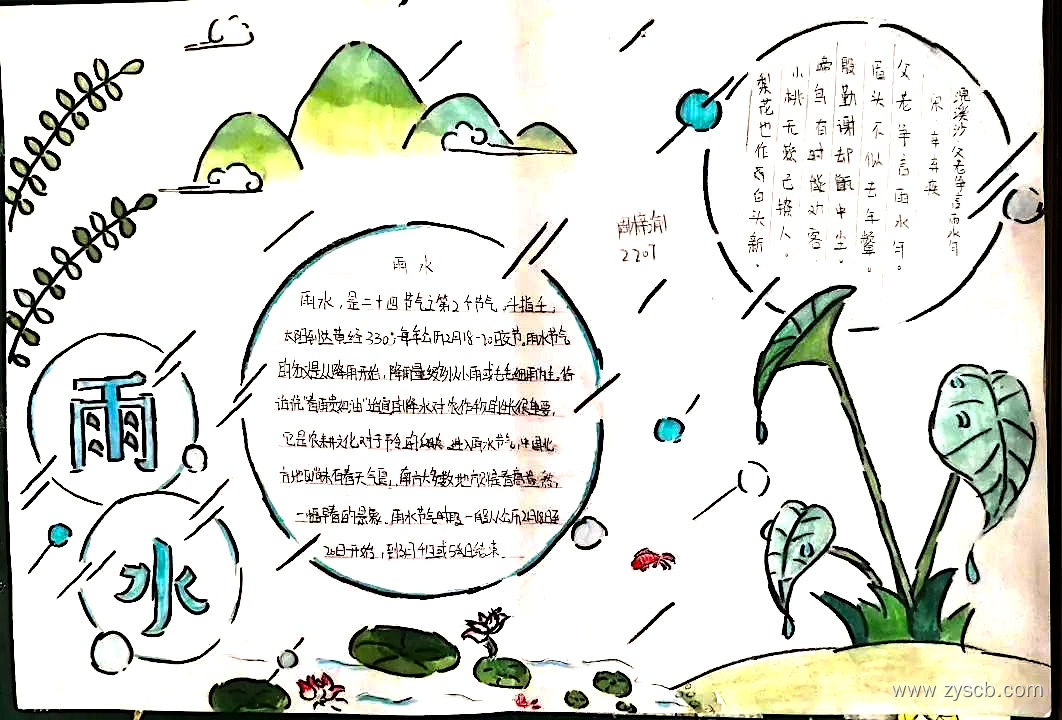 雨
水
雨水
雨水，是二十四节气之第2个节气，斗指壬，
太阳到达黄经330°，每年公历2月18-20日交节。雨水节气
的含义是从降雨开始，降雨量级别以小雨或毛毛细雨为主。俗
话说"春雨贵如油"适宜的降水对农作物的生长很重要，
它是农耕文化对于节令的反映。进入雨水节气，中国北
方地区 春天气息，南方大多数地方 春意盎然，
一幅早春的景象。雨水节气时段一般从公历2月18日至
20日开始，到3月4日或5日结束
浣溪沙 父老争言雨水匀
宋 辛弃疾
父老争言雨水匀。
眉头不似去年颦。
殷勤谢却甑中尘。
啼鸟有时能劝客
小桃无赖已撩人。
梨花也作 白头新。
2207
www.zyscb.com